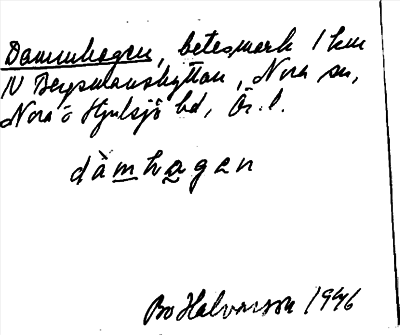 Dammhagen, betesmark 1 km
N Bergsmanshyttan, Nora sn,
Nora o Hjulsjö bd, Ör. l.
dàmhagen
Bo Halvarsson 1946